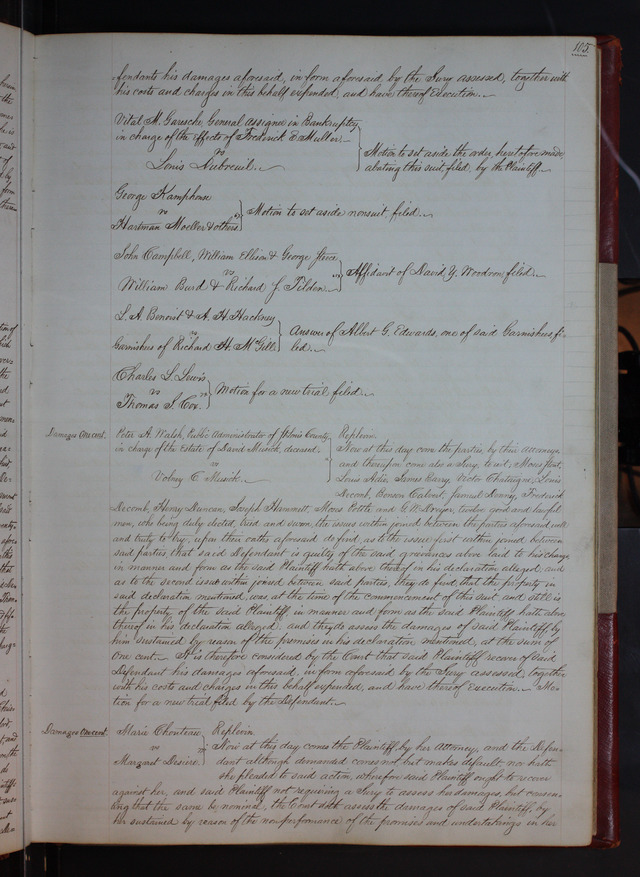 105
fendants his damages aforesaid, in form aforesaid, by the Jury assessed, together with
his costs and charges in this behalf expended, and have thereof Execution.
Vital M. Garesche, General Assignee in Bankruptcy
in charge of the effects of Frederick DaMuller
vs
Louis Dubreuil.
Motion to set aside the order, heretofore made
abating this suit, filed, by the Plaintiff.
George Kamphouse
vs
Hartman Moeller & others
Motion to set aside nonsuit, filed.
John Campbell, William Ellison & George
vs
William Burd & Richard J. Tilden
Affidavit of David Y. Woodrow, filed.
L. A. Benoist & A. H. Hackney
vs
Garnishees of Richard H. McGill
Answer of Albert G. Edwards, one of said Garnishees fi-
led.
Charles L. Lewis
vs
Thomas J. Cox.
Motion for a new trial filed.
Damages One cent.
Peter A. Walsh, Public Administrator of St Louis County
in charge of the Estate of David Musick, deceased.
vs
Volney C. Musick.
Replevin.
Now at this day come the parties, by their Attorneys
and thereupon come also a Jury, to wit;
Louis James Barry, Victor Chataigne, Louis
Decomb, Benson Calvert, Frederick
Decomb, Henry Duncan, Joseph Hammett, Moses Pottle and twelve good and lawful
men, who being duly elected, tried and sworn, the issues within joined between the parties aforesaid, well
and truly to try, upon their oaths aforesaid do find, as to the issue first within joined between
said parties, that said Defendant is guilty of the said grievances above laid to his charge
in manner and form as the said Plaintiff hath above thereof in his declaration alleged; and
as to the second issue within joined between said parties, they do find, that the property in
said declaration mentioned, was at the time of the commencement of this suit and still is
the property of the said Plaintiff, in manner and form as the said Plaintiff hath above
thereof in his declaration alleged; and they do assess the damages of said Plaintiff, by
him sustained by reason of the premises in his declaration mentioned, at the sum of
One cent. It is therefore considered by the Court that said Plaintiff recover of said
Defendant his damages aforesaid, in form aforesaid by the Jury assessed, together
with his costs and charges in this behalf expended, and have thereof Execution. Mo-
tion for a new trial filed by the Defendant.
Damages One cent.
Marie Chouteau
vs
Margaret Desiré
Replevin.
Now at this day comes the Plaintiff, by her Attorney, and the Defen-
dant although demanded comes not but makes default, nor hath
she pleaded to said action, wherefore said Plaintiff ought to recover
against her, and said Plaintiff not requiring a Jury to assess her damages, but consen-
ting that the same be nominal, the Court doth assess the damages of said Plaintiff, by
her sustained by reason of the nonperformance of the promises and undertakings in her